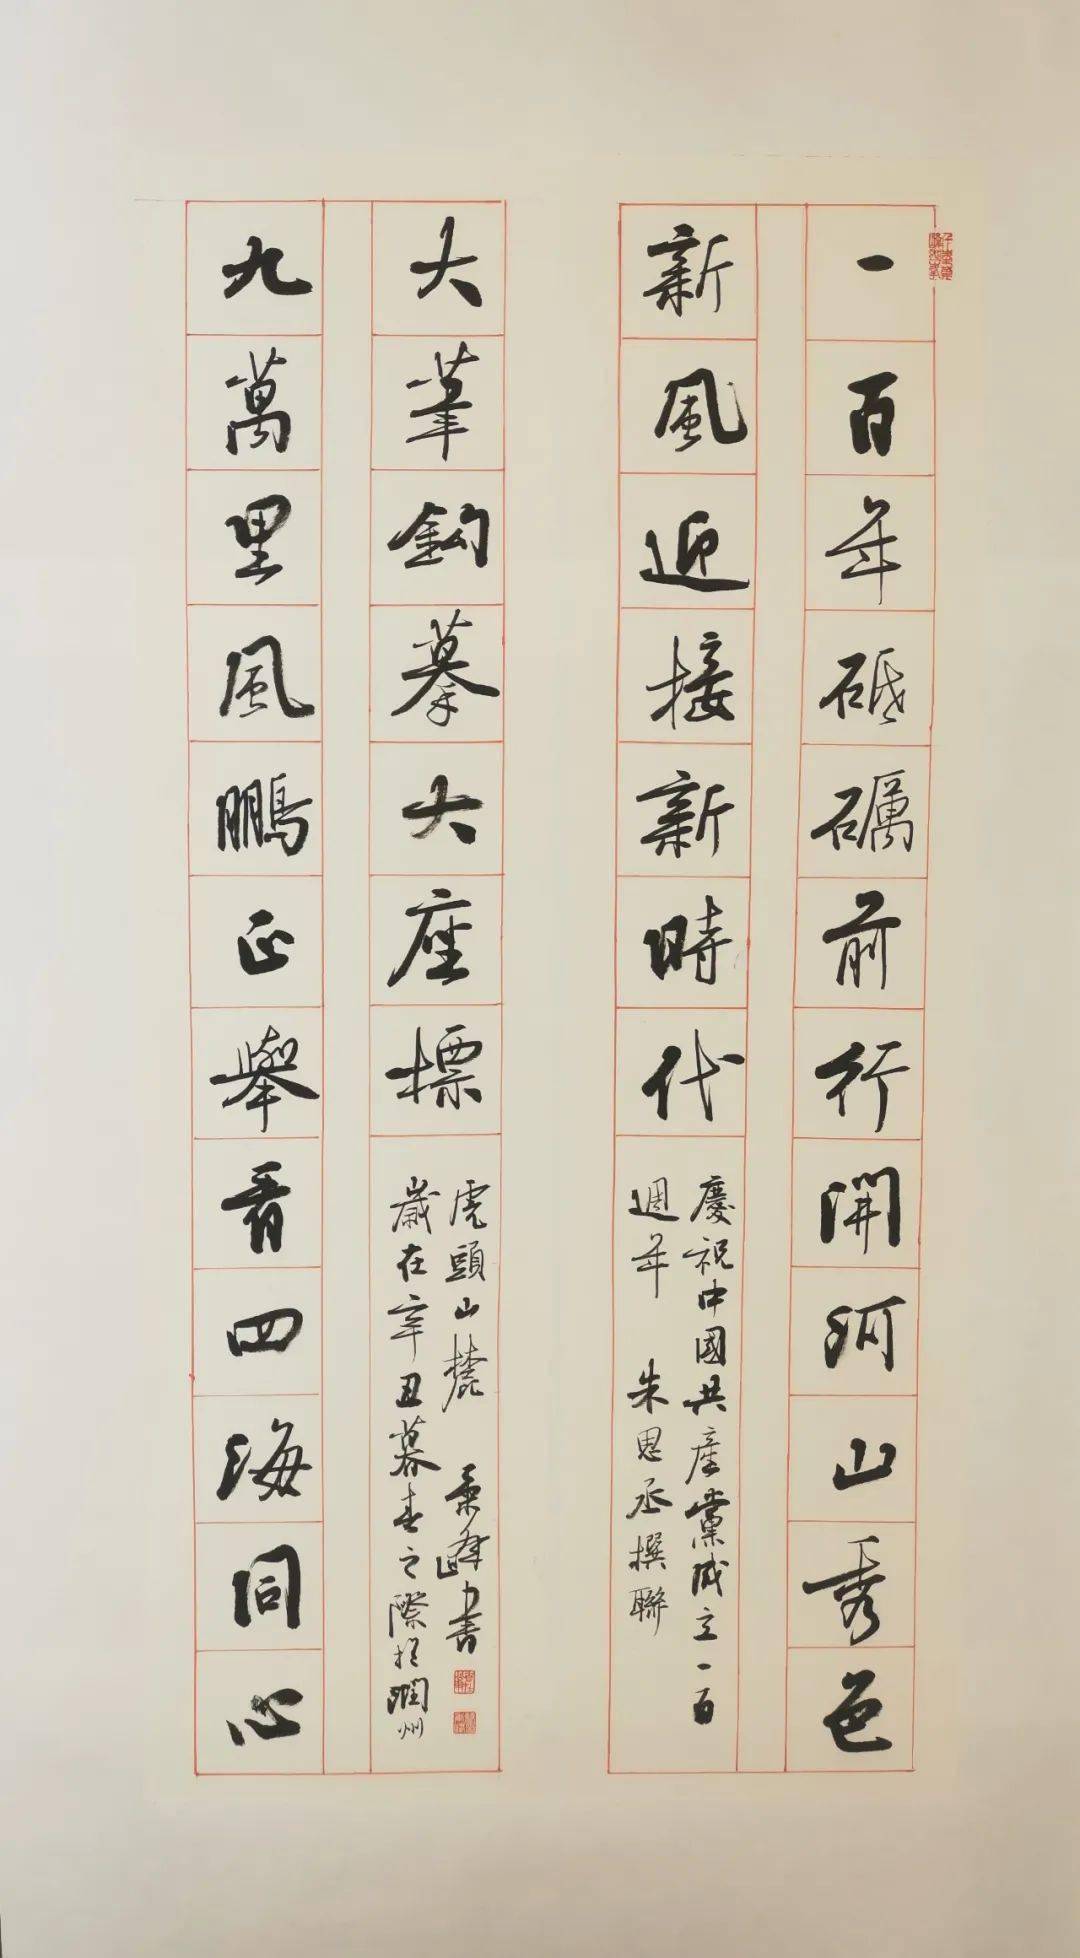 一百年砥礪前行開河山秀色
新風迎接新時代
慶祝中國共産黨成立一百
週年 朱思丞撰聯
九萬里風鵬正舉看四海同心
大筆鈎摹大座標
歲在辛丑暮春之際於潤州
虎頭山麓 書